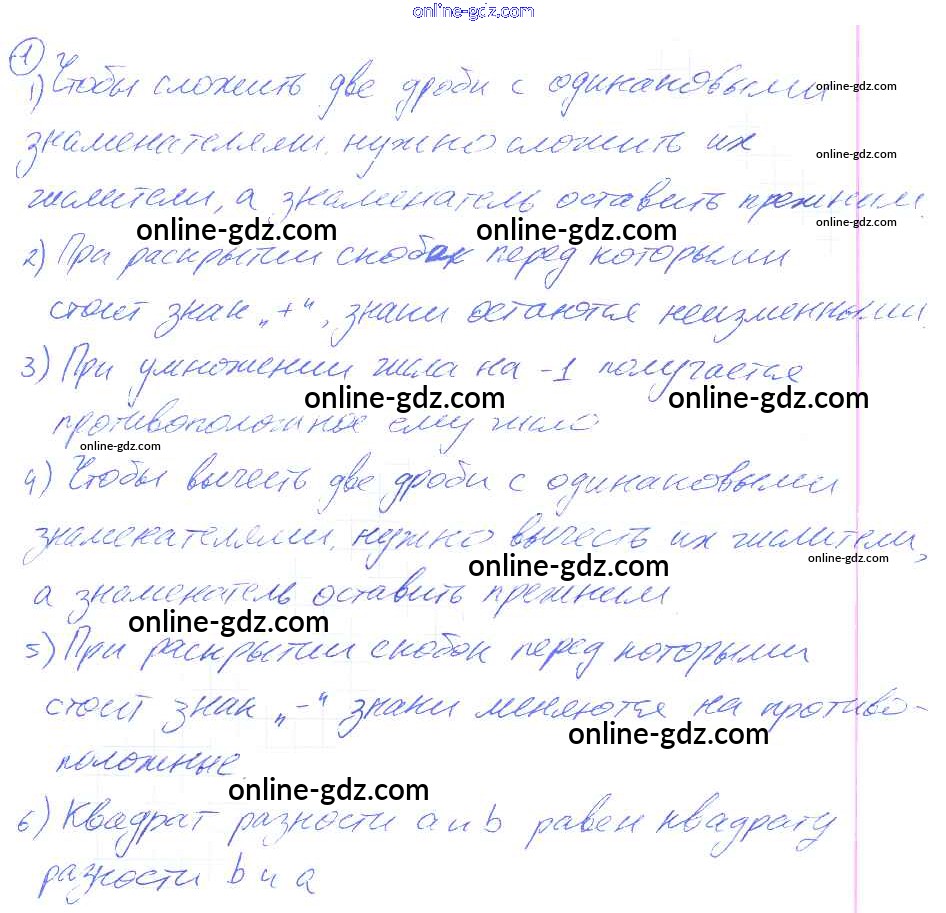 online-gdz.com
1
1) Чтобы сложить две дроби с одинаковыми
online-gdz.com
знаменателями, нужно сложить их
online-gdz.com
числители, а знаменатель оставить прежним.
online-gdz.com online-gdz.com online-gdz.com
2) При раскрытии скобок перед которыми
стоит знак „+“, знаки остаются неизменными.
3) При умножении числа на -1 получается
online-gdz.com online-gdz.com
противоположное ему число
online-gdz.com
4) Чтобы вычесть две дроби с одинаковыми
знаменателями, нужно вычесть их числители,
online-gdz.com online-gdz.com
а знаменатель оставить прежним
online-gdz.com
5) При раскрытии скобок перед которыми
стоит знак „-“ знаки меняются на противо-
online-gdz.com
положные.
online-gdz.com
6) Квадрат разности a и b равен квадрату
разности b и a